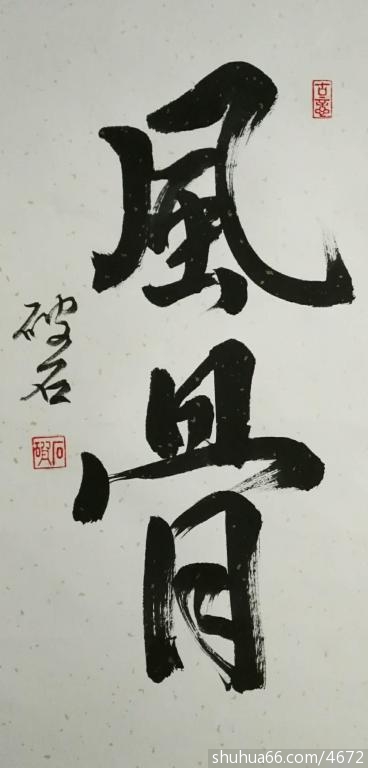 風骨
破石
shuhua66.com/4672